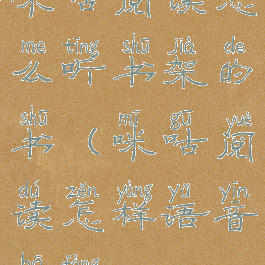 me tīng shū jià de
么听书架的
shū mī gū yuè
书（咪咕阅
dú zěn yàng yǔ yīn
读怎样语音